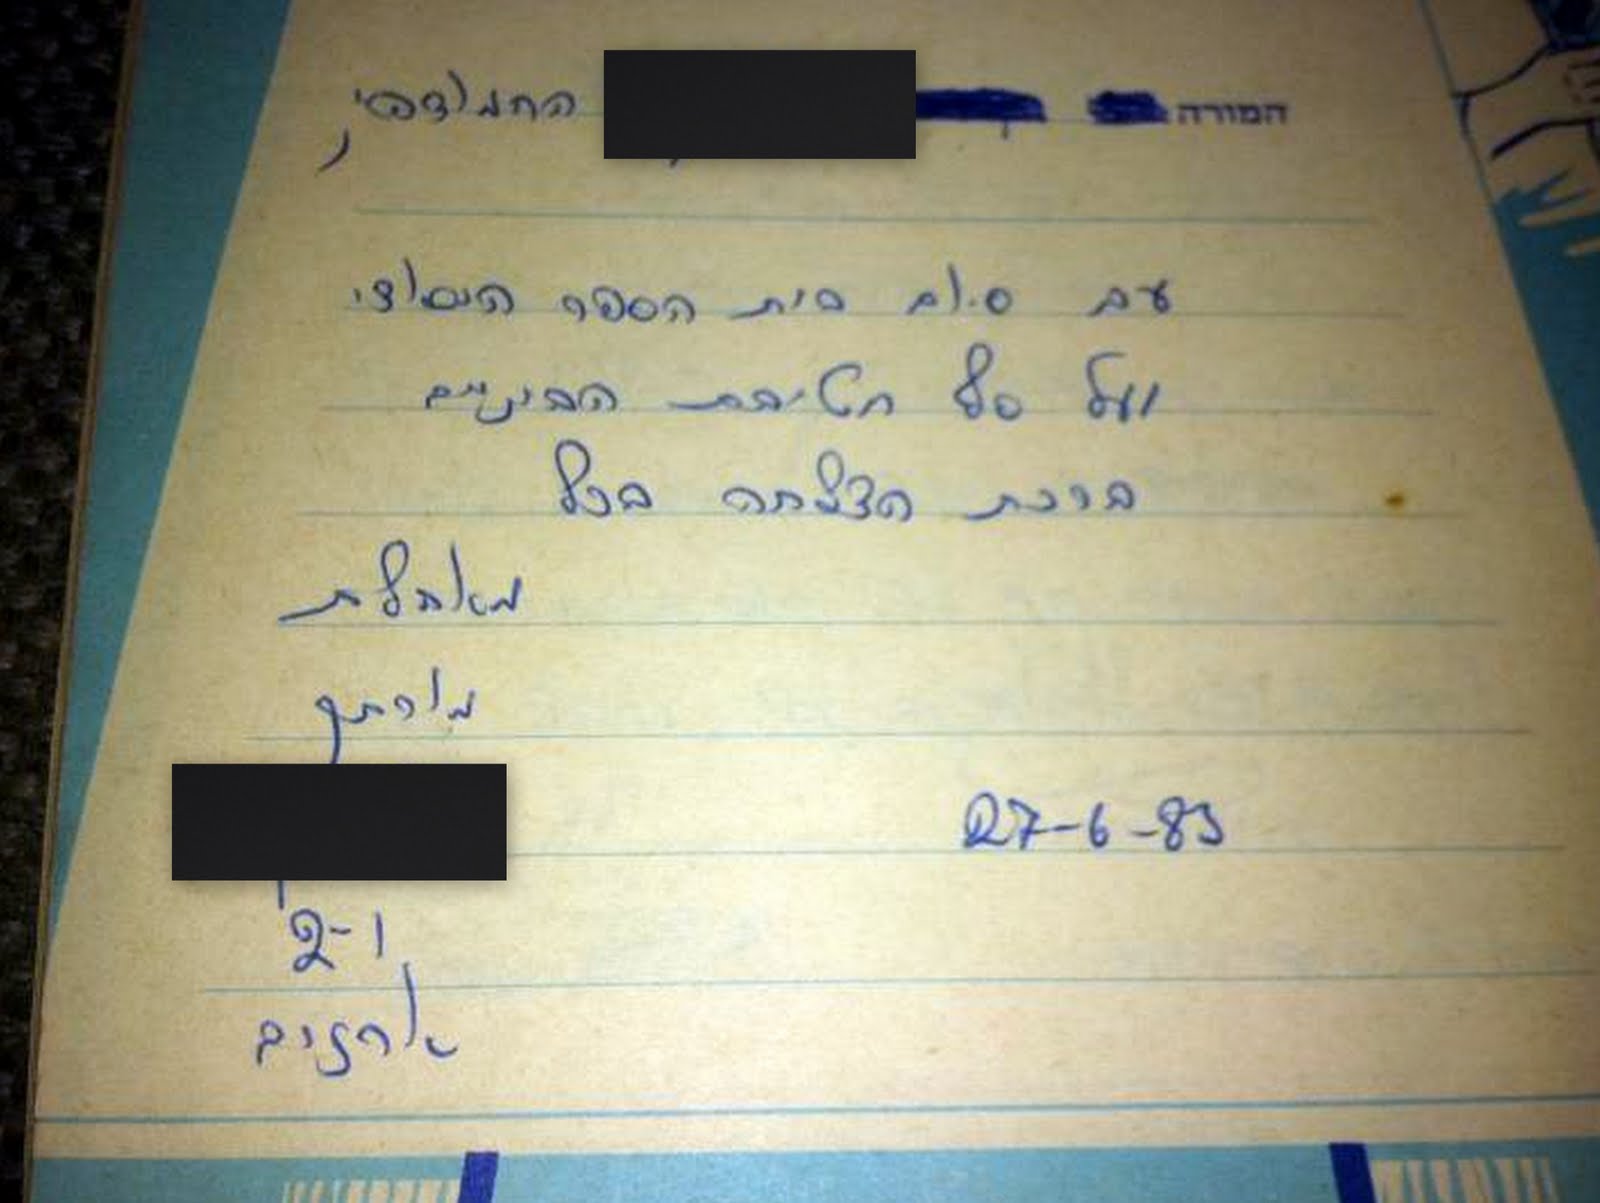 המורה החמודה
עם סיום בית הספר היסודי
ועל סף חטיבת הביניים
ברכת הצלחה בכל
מאחלת
מורתך
27-6-83
ו-2
ארזים